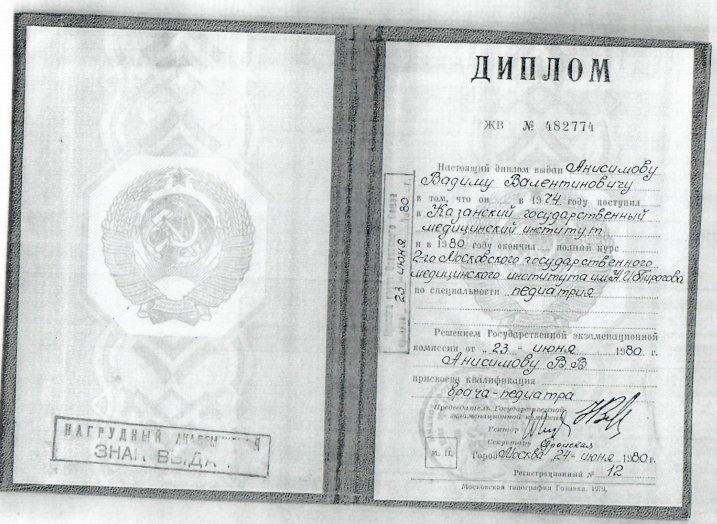 НАГРУДНЫЙ
ЗНАК ВЫДАН
ДИПЛОМ
ЖВ № 482774
Настоящий диплом выдан Анисимову
Вадиму Валентиновичу
в том, что он в 1974 году поступил
в Казанский государственный
медицинский институт
и в 1980 году окончил полный курс
2-го Московского государственного
медицинского института им. Н.И. Пирогова
по специальности педиатрия
23 июня 80 г.
Решением Государственной экзаменационной
комиссии от „23“ июня 1980 г.
Анисимову В.В
присвоена квалификация
врача-педиатра
Председатель Государственной
экзаменационной комиссии
Ректор
Секретарь
М. П.
Город Москва 24 июня 1980 г.
Регистрационный № 12
Московская типография Гознака. 1979.